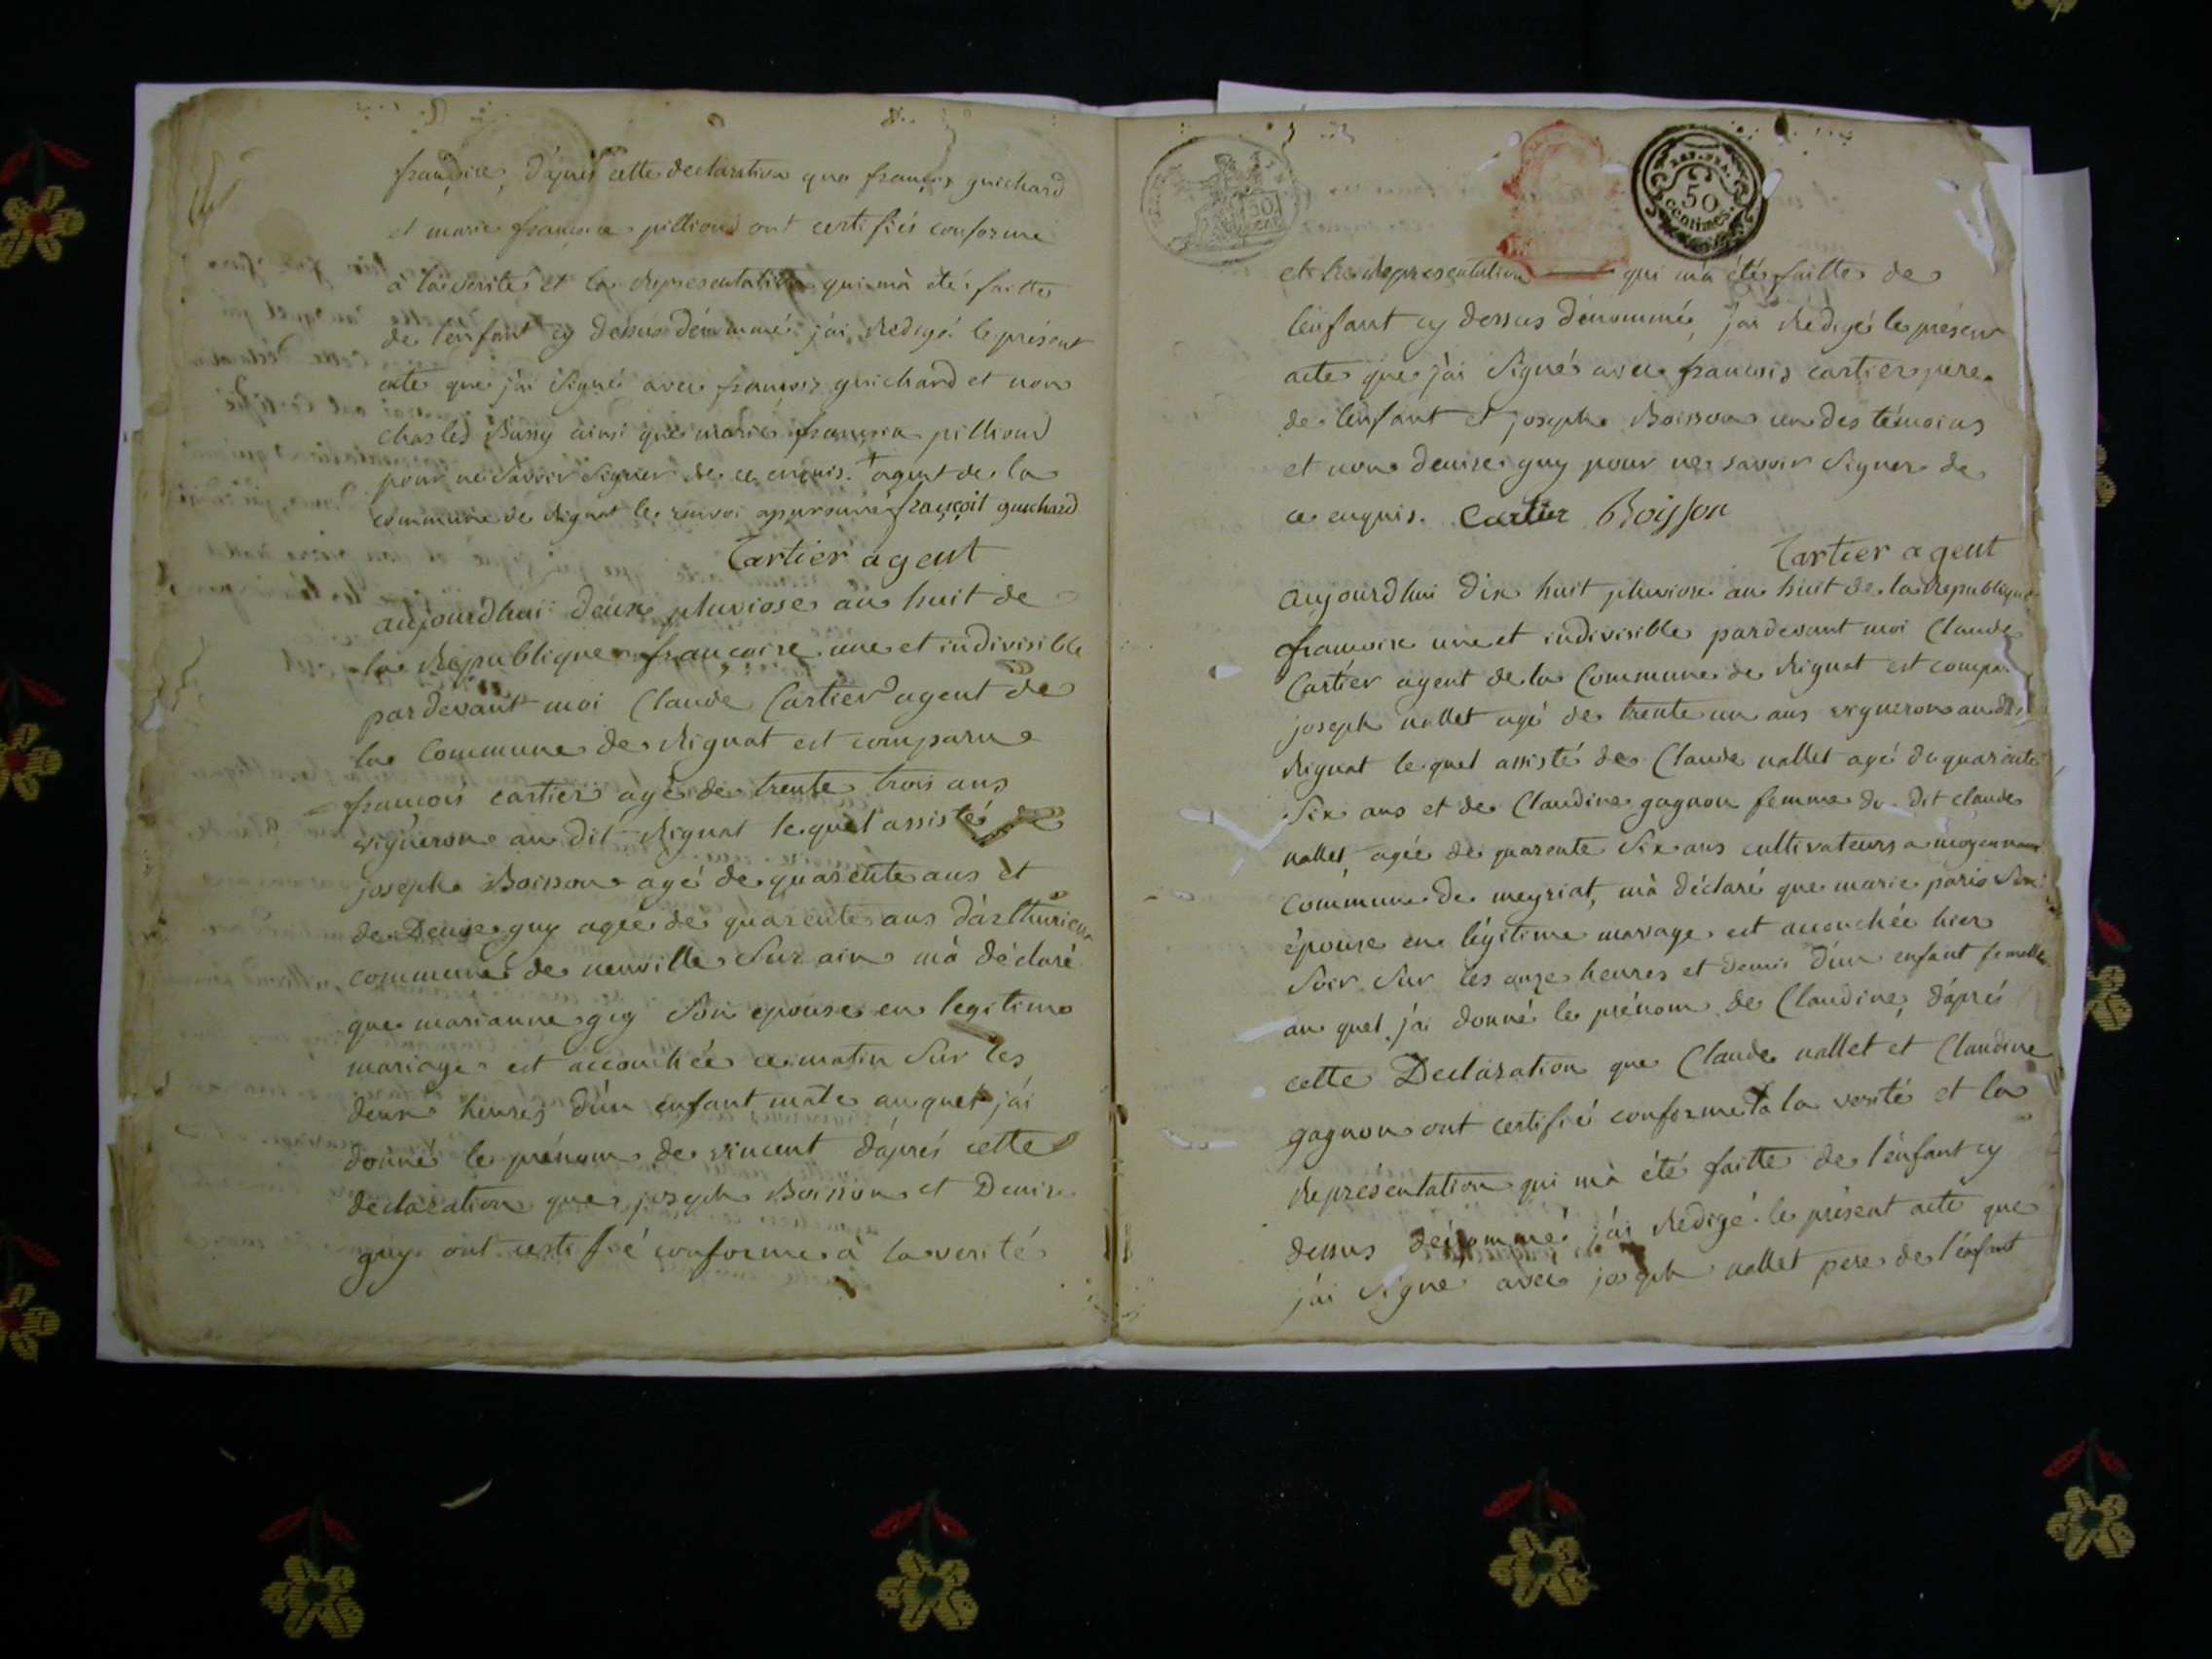 françoise, d'aprés cette declaration que françois guichard
et marie françoise pilliond ont certifiés conforme
à la verité et la Representation qui m'à été faitte
de l'enfant cy dessus dénommé, j'ai Redigé le présent
acte que j'ai Signé avec françois guichard et non
Charles Bussy ainsi que marie françoise pilliond
pour ne Savoir Signer de ce enquis. + agent de la
commune de Rignat le renvoi approuvé françoit guichard
Cartier agent
aujourdhui deux pluviose an huit de
la Republique françoise une et indivisible
pardevant moi Claude Cartier agent de
la Commune de Rignat est comparu
françois cartier agé de trente trois ans
vigneron au dit Rignat lequel assisté de
joseph Boisson agé de quarente ans et
de Denise guy agée de quarente ans d'arthurieux
commune de neuville Sur ain m'à déclaré
que marianne guy Son epouse en legitime
mariage est accouchée ce matin Sur les
deux heures d'un enfant mâle auquel j'ai
donné le prénom de vincent d'aprés cette
declaration que joseph Boisson et Denise
guy ont certifié conforme à la verité
50
cent
REP. FRA.
50
centimes.
et la Representation qui m'a été faitte de
l'enfant cy dessus dénommé, j'ai Rédigé le présent
acte que j'ai Signé avec françois cartier pere
de l'enfant et joseph Boisson un des témoins
et non denise guy pour ne savoir Signer de
ce enquis. Cartier Boisson
Cartier agent
aujourdhui dix huit pluviose an huit de la Republique
francoise une et indivisible pardevant moi Claude
Cartier agent de la Commune de Rignat est compa
joseph nallet agé de trente un ans vigneron au dit
Rignat lequel assisté de Claude nallet agé de quarente
Six ans et de Claudine gagnon femme du dit claude
nallet agée de quarente Six ans cultivateurs a
commune de meyriat, m'à déclaré que marie paris Son
épouse en légitime mariage est accouchée hier
Soir Sur les onze heures et demie d'un enfant femelle
au quel j'ai donné le prénom de Claudine, d'aprés
cette Declaration que Claude nallet et Claudine
gagnon ont certifié conforme à la verité et la
Représentation qui m'à été faitte de l'enfant cy
dessus dénommé j'ai Redigé le présent acte que
j'ai Signé avec joseph nallet pere de l'enfant